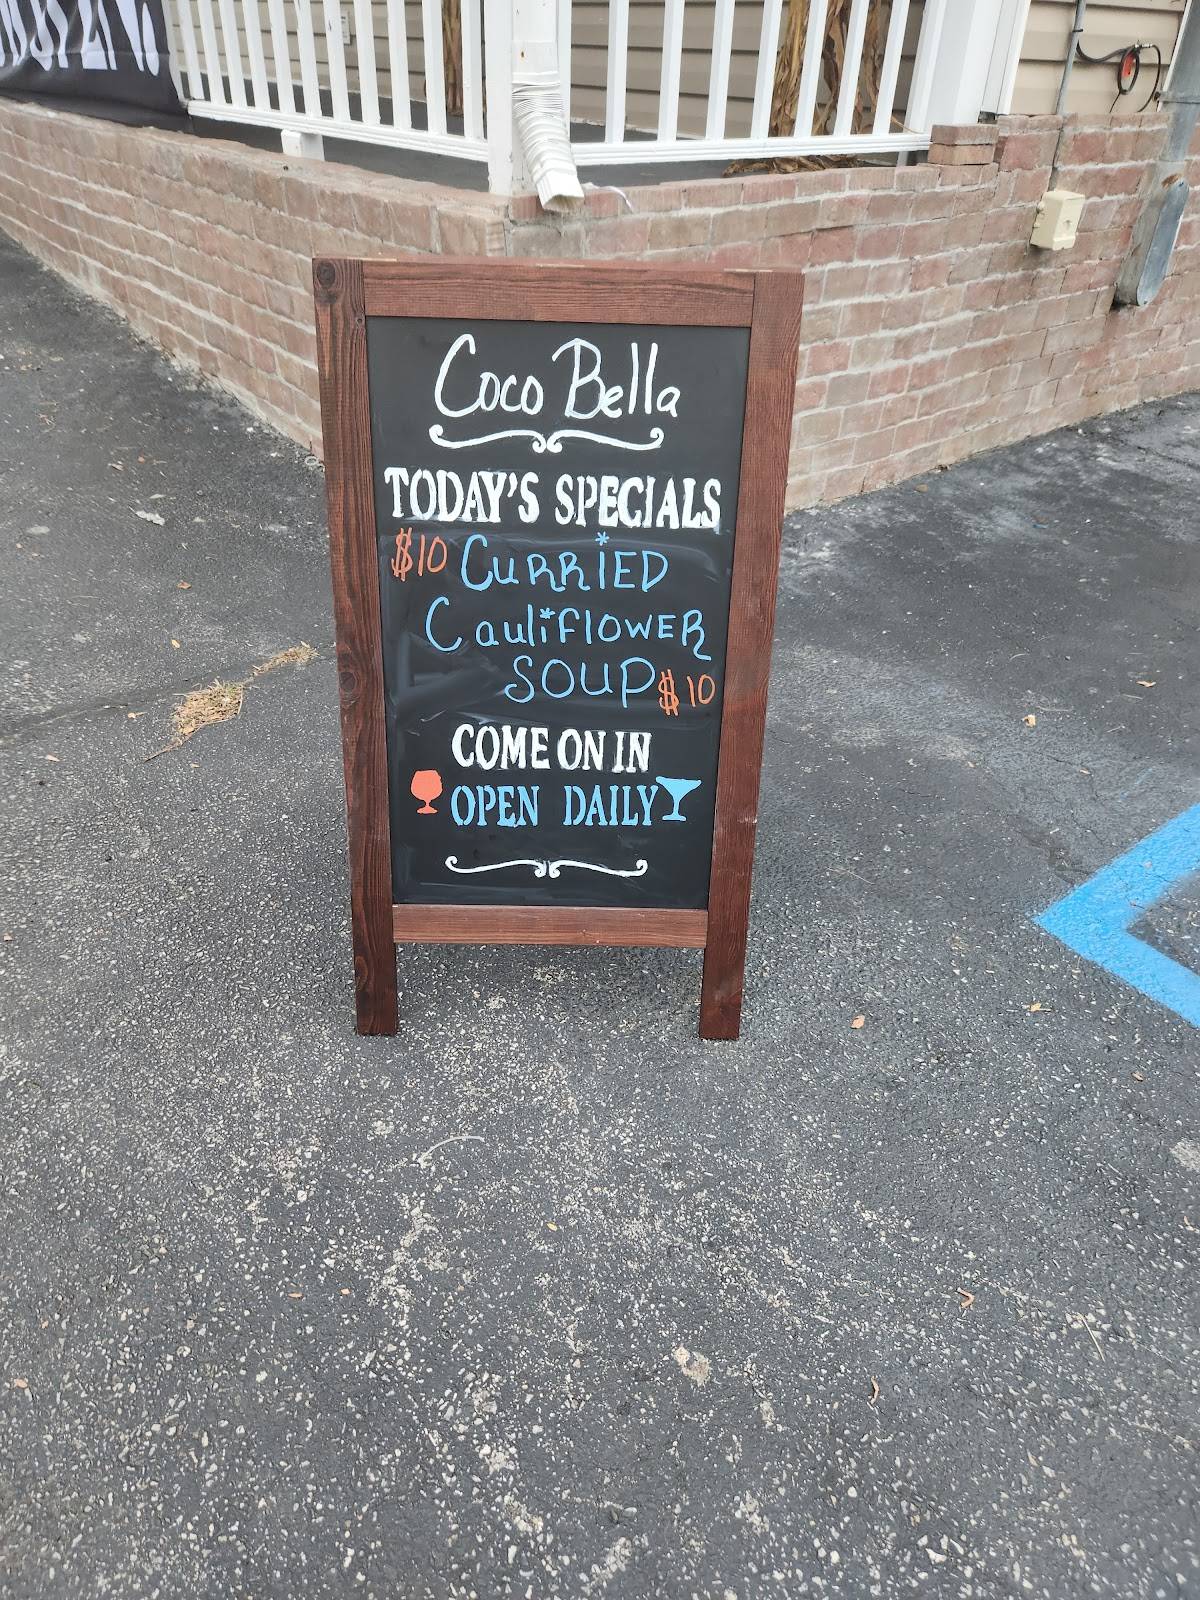 Coco Bella
TODAY'S SPECIALS
$10 CURRiED
CauliFlOWER
SOUP $10
COME ON IN
OPEN DAILY